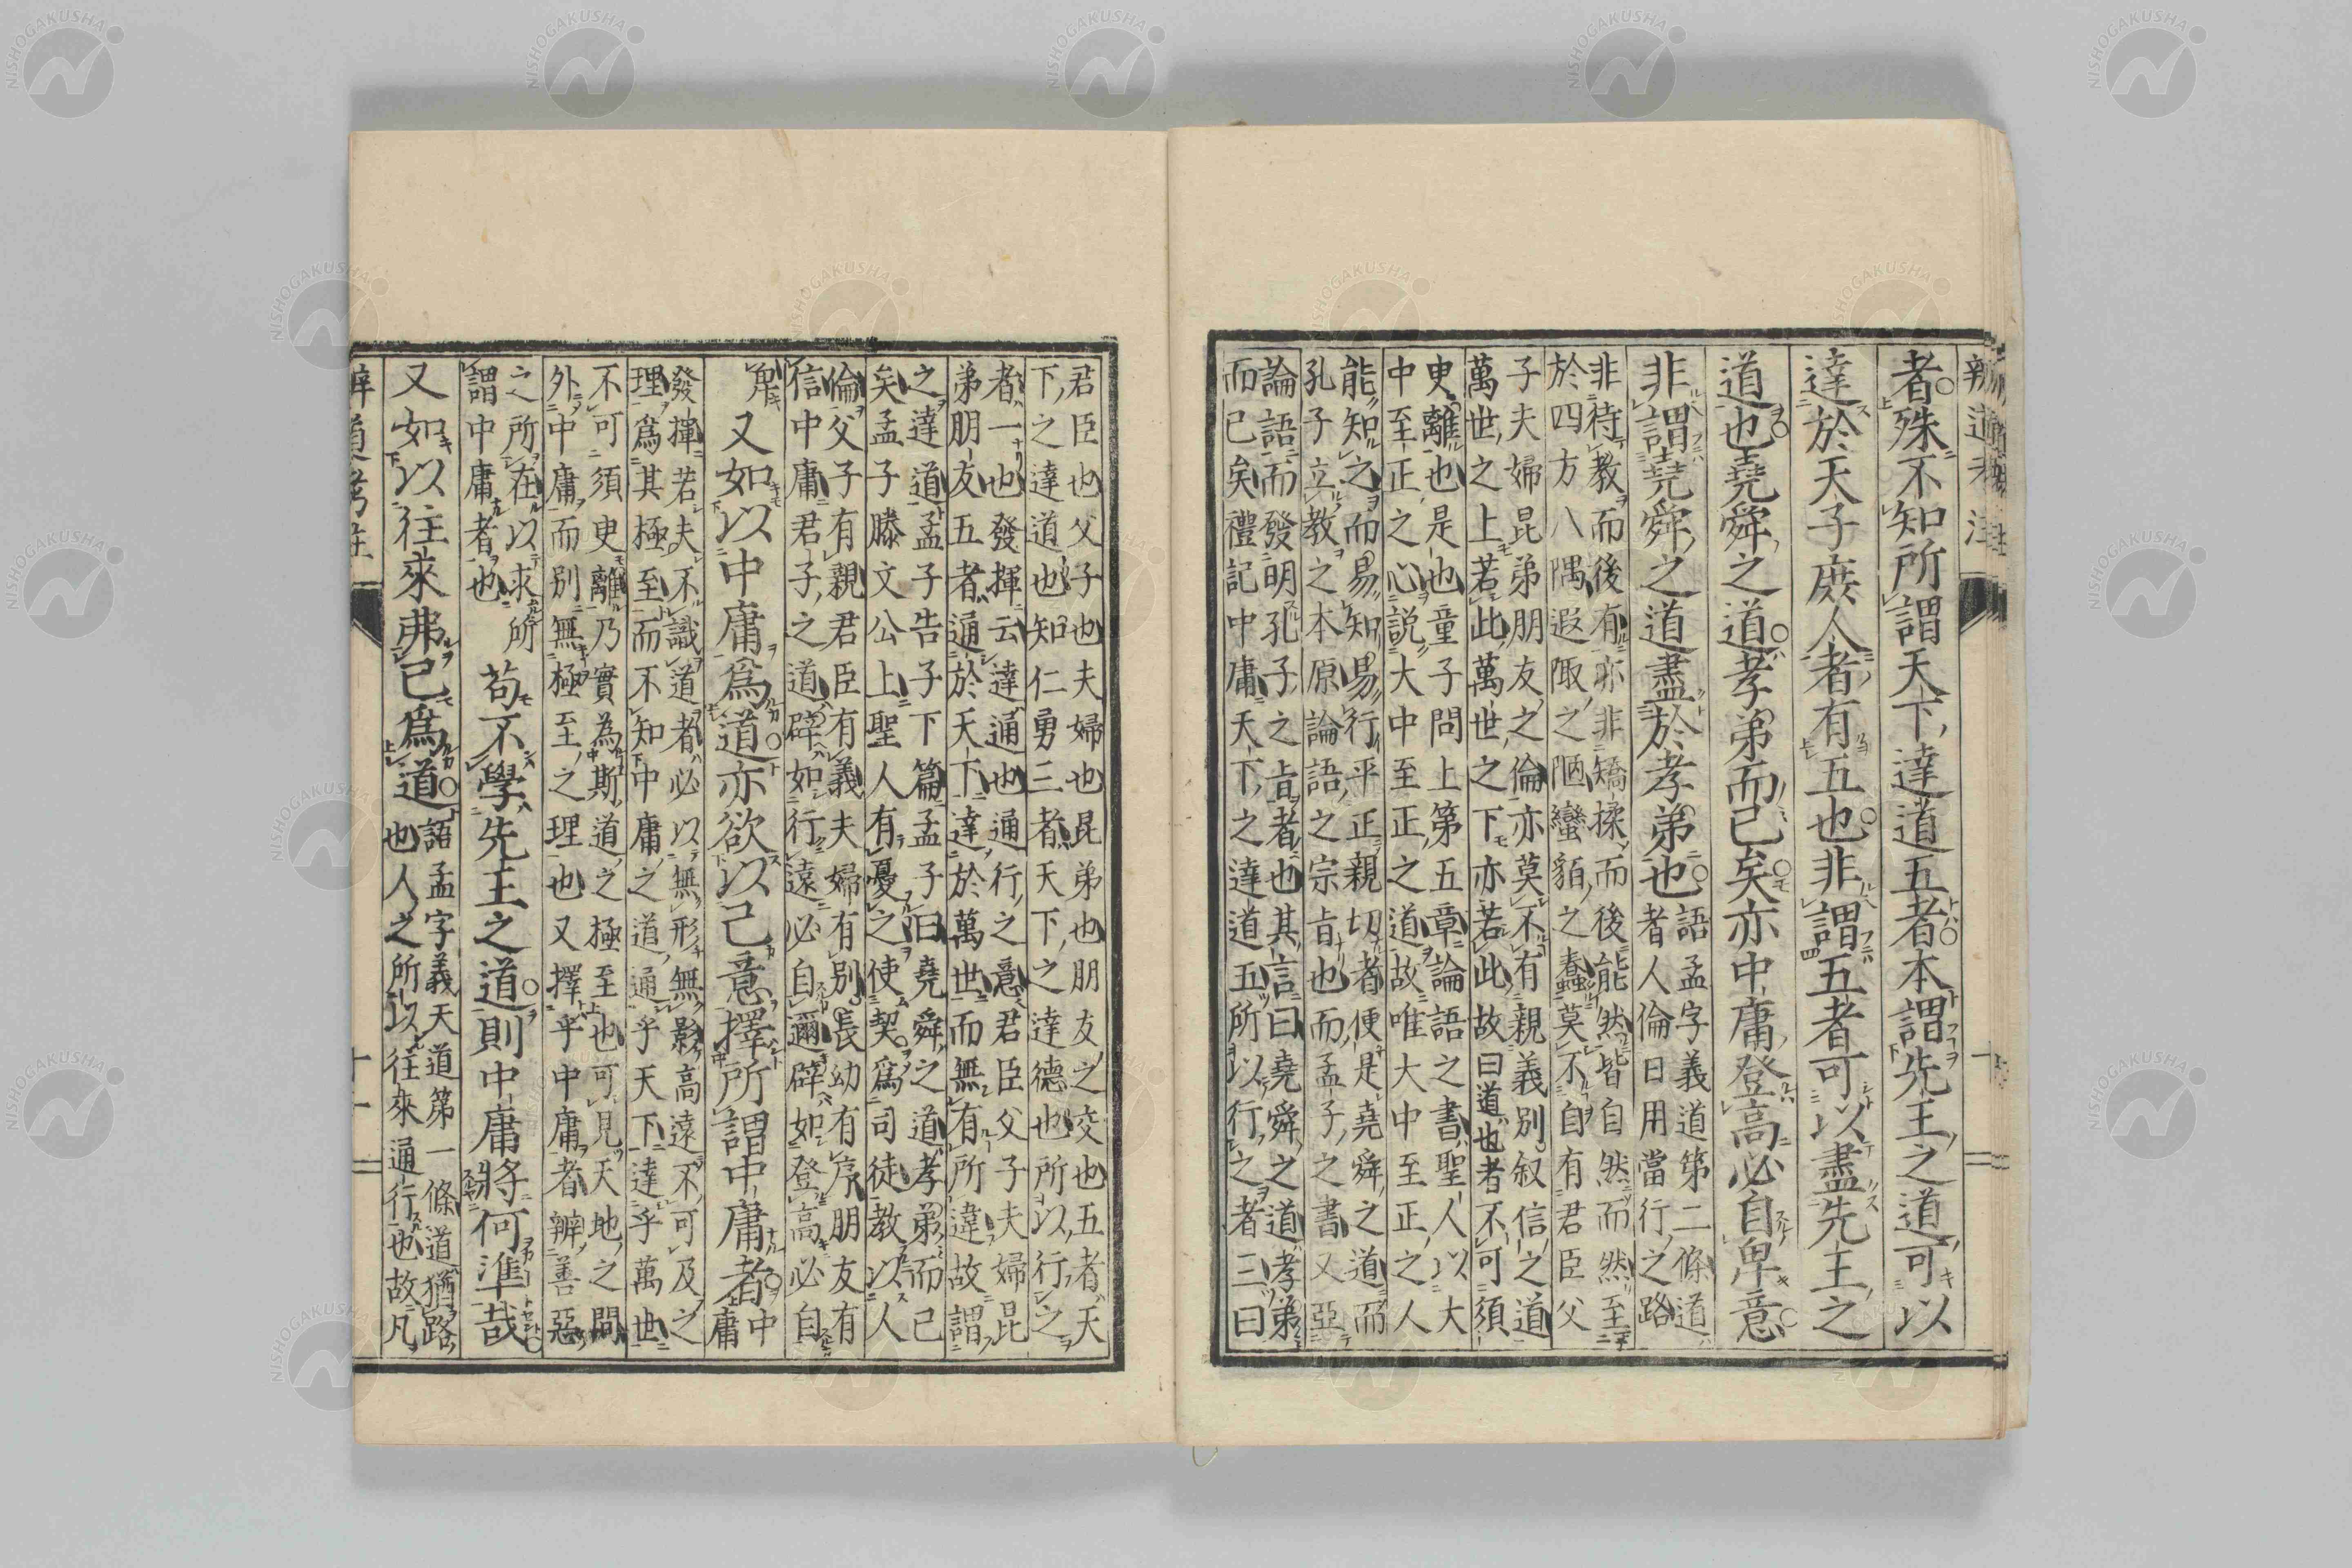 辨道考注
者殊不知所謂天下達道五者本謂先王之道可以
達於天子庶人者有五也非謂五者可以盡先王之
道也堯舜之道孝弟而已矣亦中庸登高必自卑意
非謂堯舜之道盡於孝弟也
語孟字義道第二條道
者人倫日用當行之路
非待教而後有亦非矯揉而後能然皆自然而然至
於四方八隅遐陬之陋蠻貊之蠢莫不自有君臣父
子夫婦昆弟朋友之倫亦莫不有親義別叙信之道
萬世之上若此萬世之下亦若此故曰道也者不可須
臾離也是也童子問上第五章論語之書聖人以大
中至正之心説大中至正之道故唯大中至正之人
能知之而易知易行平正親切者便是堯舜之道而
孔子立教之本原論語之宗旨也而孟子之書又亞
論語而發明孔子之旨者也其言曰堯舜之道孝弟
而已矣禮記中庸天下之達道五所以行之者三曰
君臣也父子也夫婦也昆弟也朋友之交也五者天
下之達道也知仁勇三者天下之達德也所以行之
者一也發揮云達通也通行之意君臣父子夫婦昆
弟朋友五者通於天下達於萬世而無有所違故謂
之達道孟子告子下篇孟子曰堯舜之道孝弟而已
矣孟子滕文公上聖人有憂之使契爲司徒教以人
倫父子有親君臣有義夫婦有別長幼有序朋友有
信中庸君子之道辟如行遠必自邇辟如登高必自
卑
又如以中庸爲道亦欲以己意擇所謂中庸者
中
庸
發揮若夫不識道者必以無形無影高遠不可及之
理爲其極至而不知中庸之道通乎天下達乎萬世
不可須臾離乃實為斯道之極至也可見天地之間
外中庸而別無極至之理也又擇乎中庸者辨善惡
之所在以求所
謂中庸者也
苟不學先王之道則中庸將何準哉
又如以往來弗已爲道
語孟字義天道第一條道猶路
也人之所以往來通行也故凡
辨道考注
十一